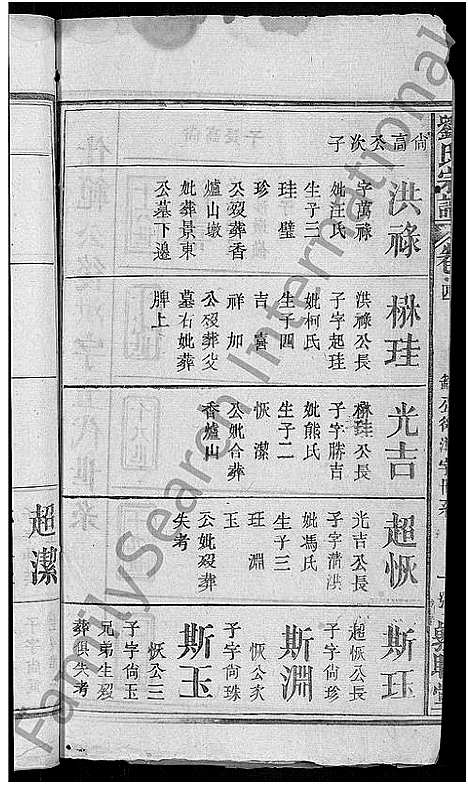 尚高公次子
洪祿
字萬祿
妣汪氏
生子三
珪 璧
珍
公歿葬香
爐山嶽
妣葬景東
公墓下邊
楙珪
洪祿公長
子字起珪
妣柯氏
生子四
吉 喜
祥 加
公歿葬父
墓右妣葬
脾上
光吉
楙珪公長
子字勝吉
妣熊氏
生子二
恢 潔
公妣合葬
香爐山
超恢
光吉公長
子字清洪
妣馮氏
生子三
玨 淵
玉
公妣歿葬
失考
斯玨
超恢公長
子字尙珍
斯淵
恢公次
子字尙珠
斯玉
恢公三
子字尙玉
兄弟生歿
葬俱失考
超潔
劉氏宗譜
卷 四
FamilySearch International